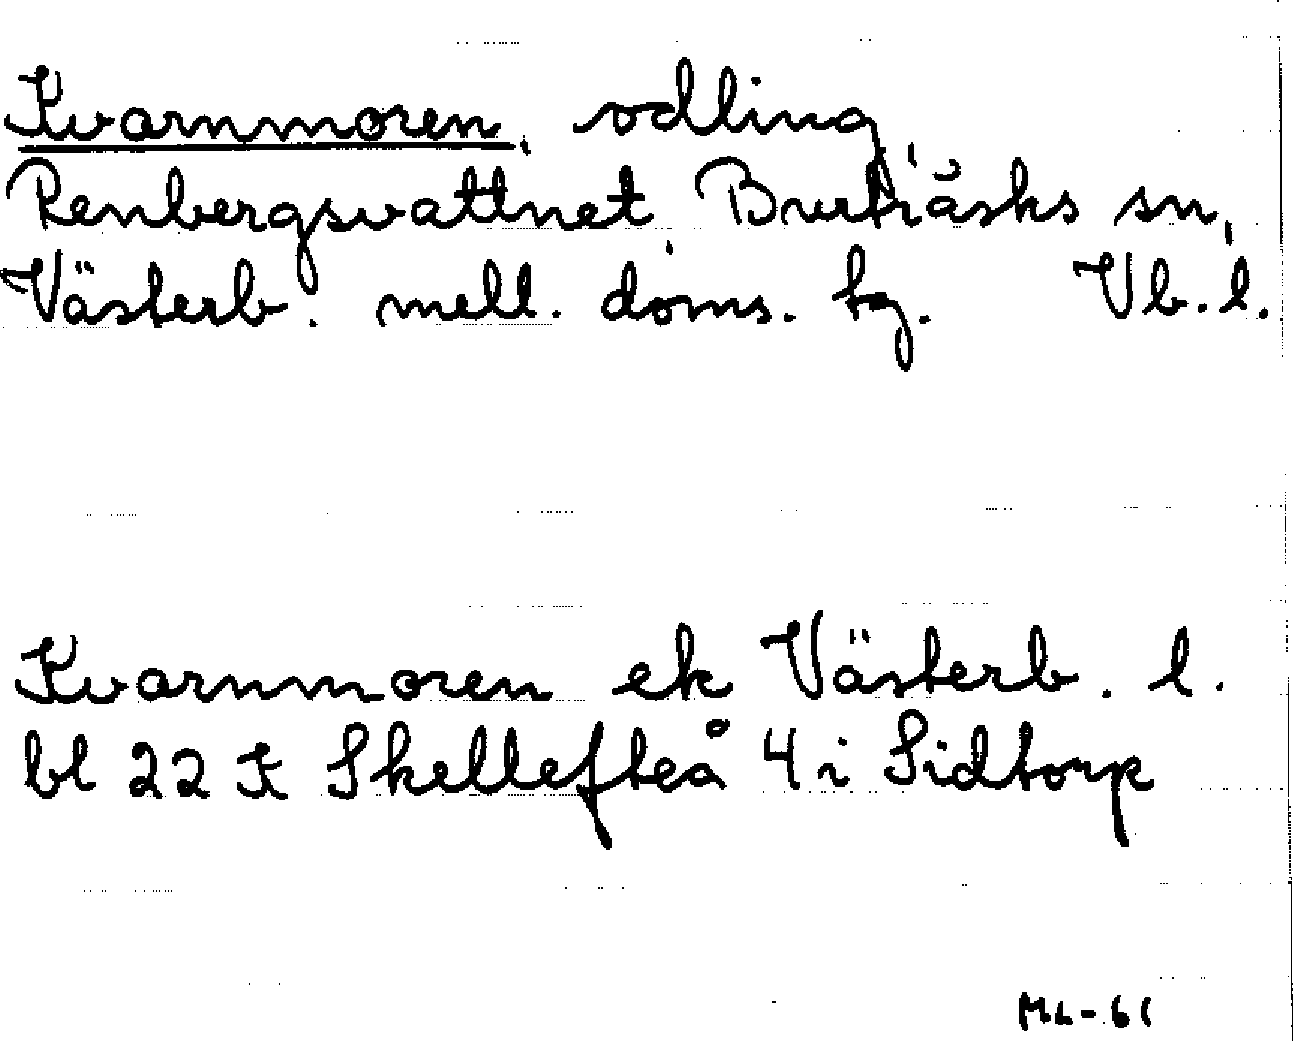 Kvarnmoren, odling,
Renbergsvattnet, Burträsks sn,
Västerb. mell. doms. tg. Vb. l.
Kvarnmoren ek Västerb. l.
bl 22 K Skellefteå 4 i Sidtorp
ML-61